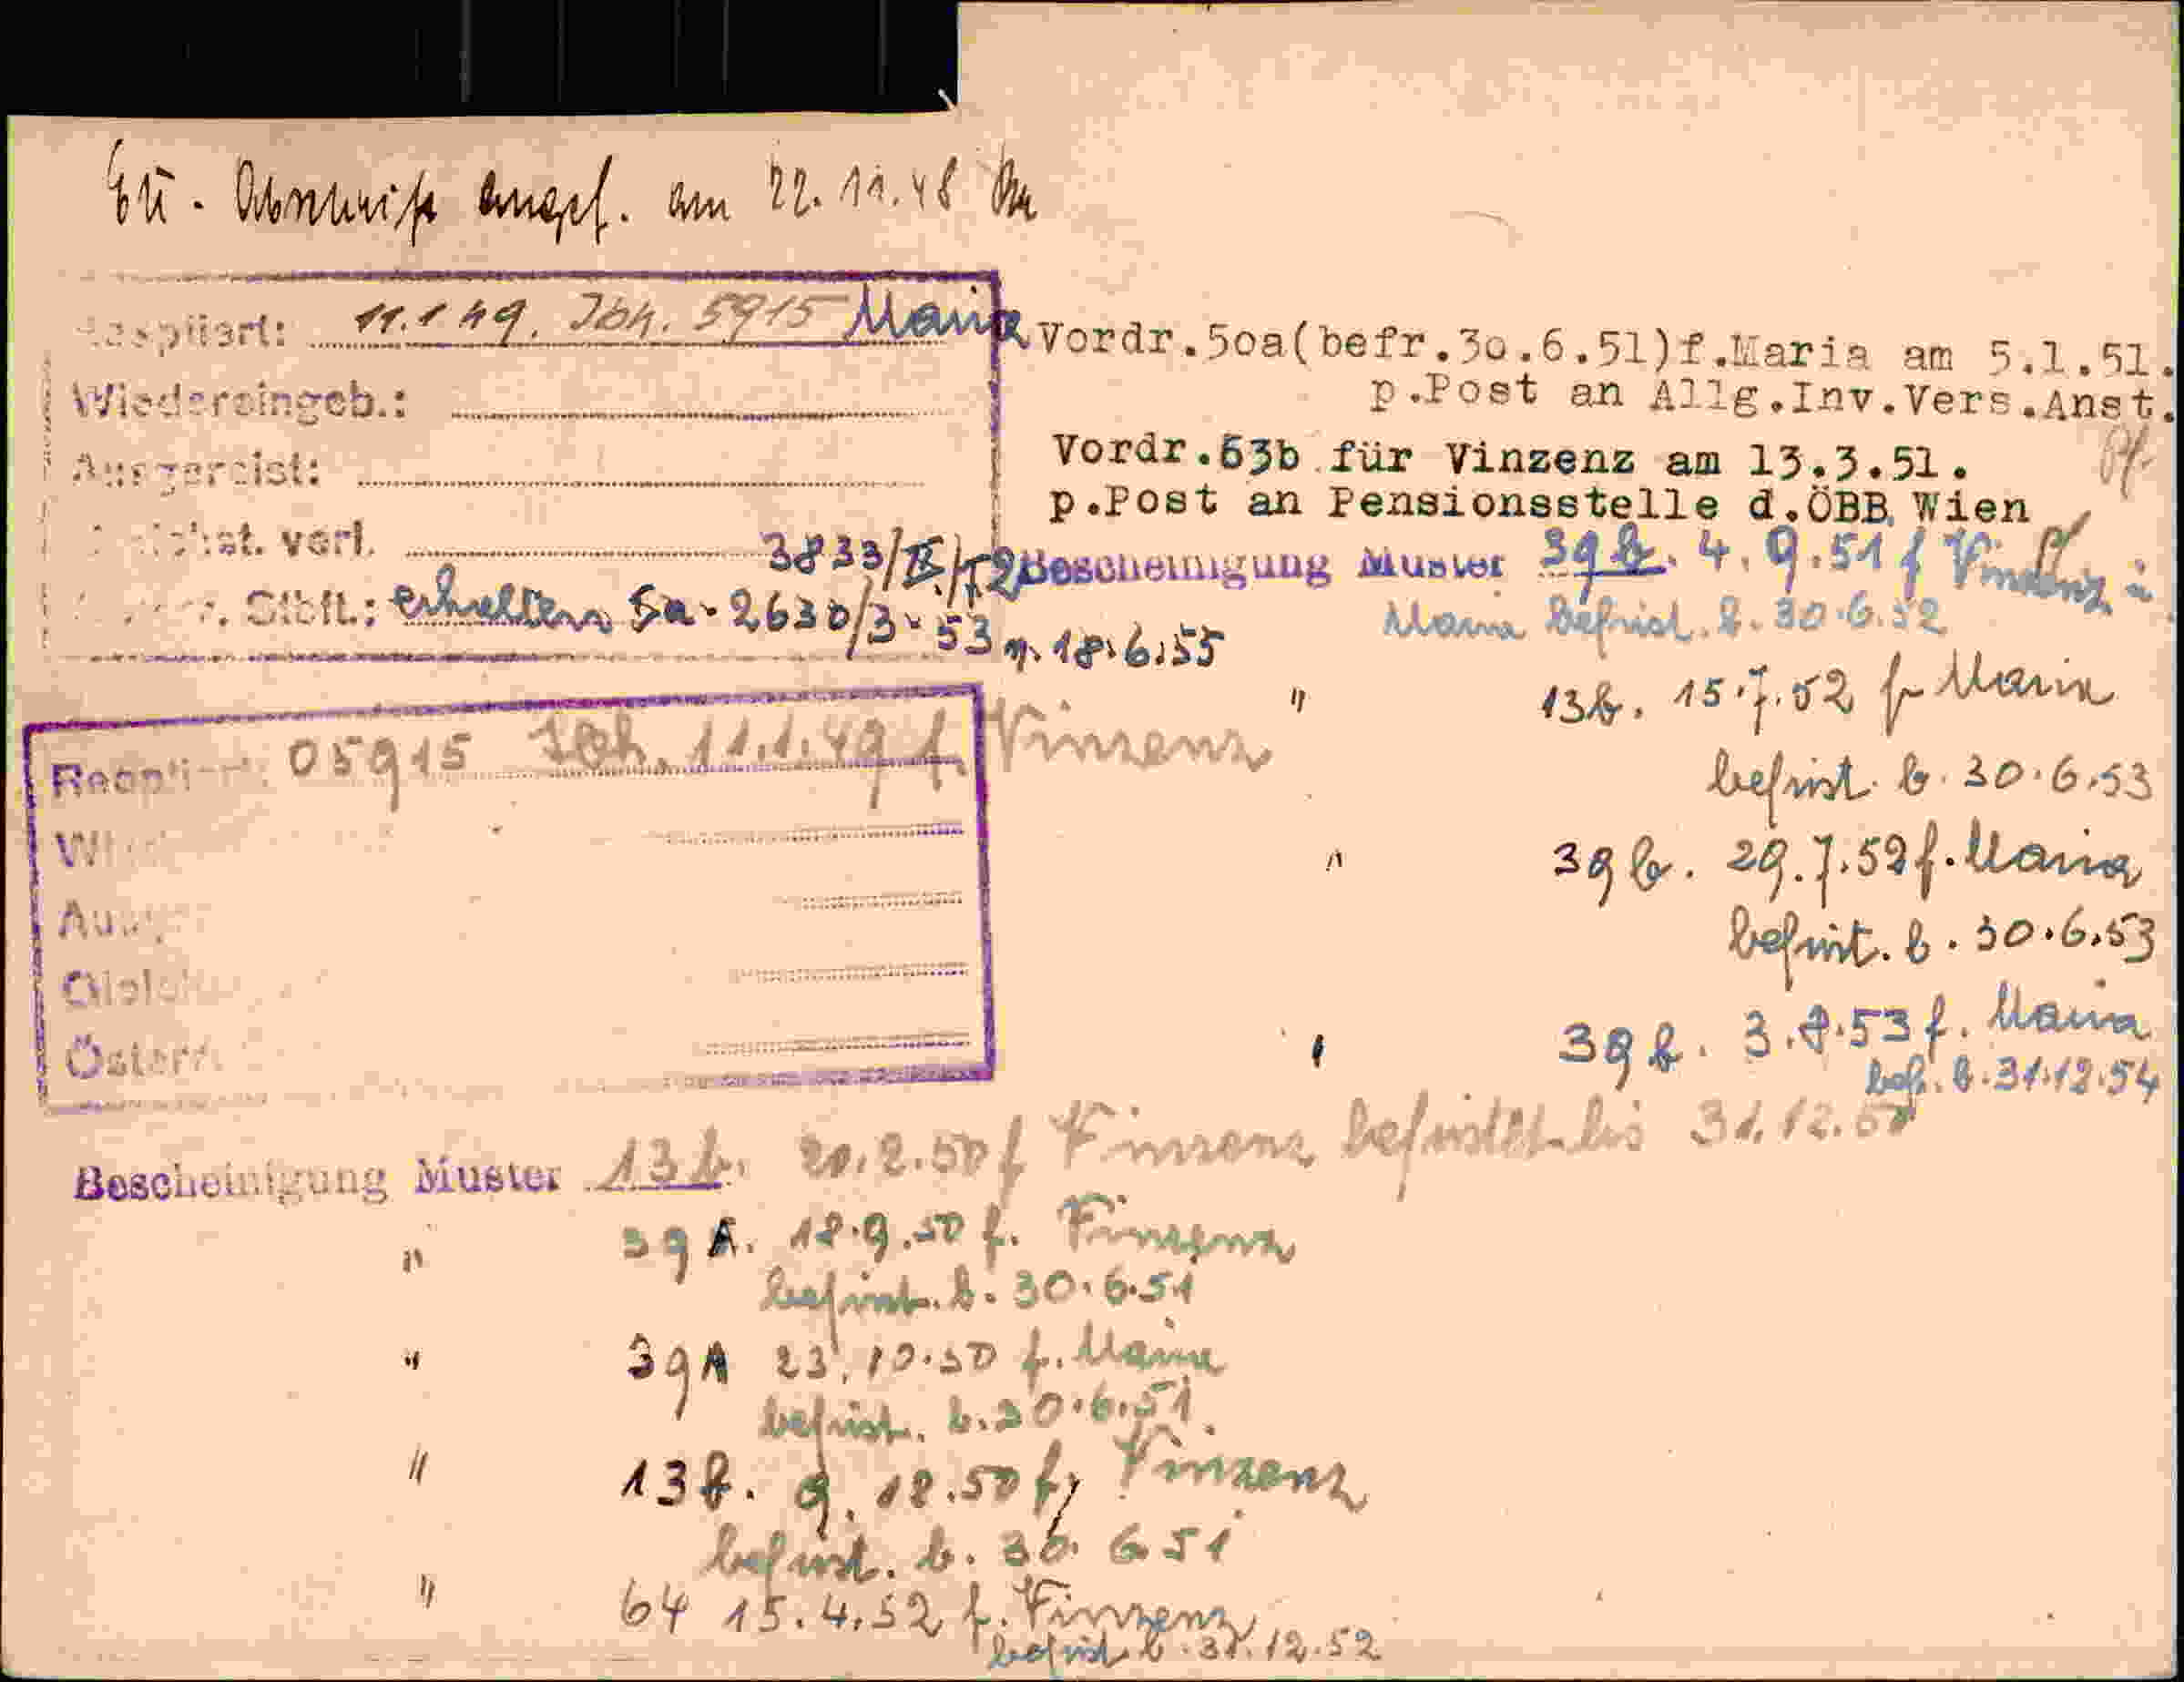 EU - Abschrift angef. am 22.11.48
Respiiert: 11.1 49. Joh. 5915 Maria
Wiedereingeb.:
Ausgereist:
verl.
3833/II/52
Stbft.: erhalten Sa. 2630/3-53 v. 18.6.55
Vordr.5oa(befr.3o.6.51)f.Maria am 5.1.51.
p.Post an Allg.Inv.Vers.Anst.
Vordr.63b für Vinzenz am 13.3.51.
p.Post an Pensionsstelle d.ÖBB Wien
Bescheinigung Muster 39 b. 4.9.51 f Vinzenz u
Maria befrist. b. 30.6.52
" 13b. 15.7.52 f Maria
befrist. b. 30.6.53
" 39 b. 29.7.52 f. Maria
befrist. b. 30.6.53
" 39 b. 3.8.53 f. Maria
bef. b. 31.12.54
05915 Joh. 11.1.49 f. Vinzenz
Österr.
Bescheinigung Muster 13 b. 20.2.50 f Vinzenz befristet bis 31.12.50
" 39 A. 18.9.50 f. Vinzenz
befrist. b. 30.6.51
" 39 A 23.10.50 f. Maria
befrist. b. 30.6.51.
" 13 b. 9.12.50 f, Vinzenz
befrist. b. 30.6.51
" 64 15.4.52 f. Vinzenz
befrist. b. 31.12.52